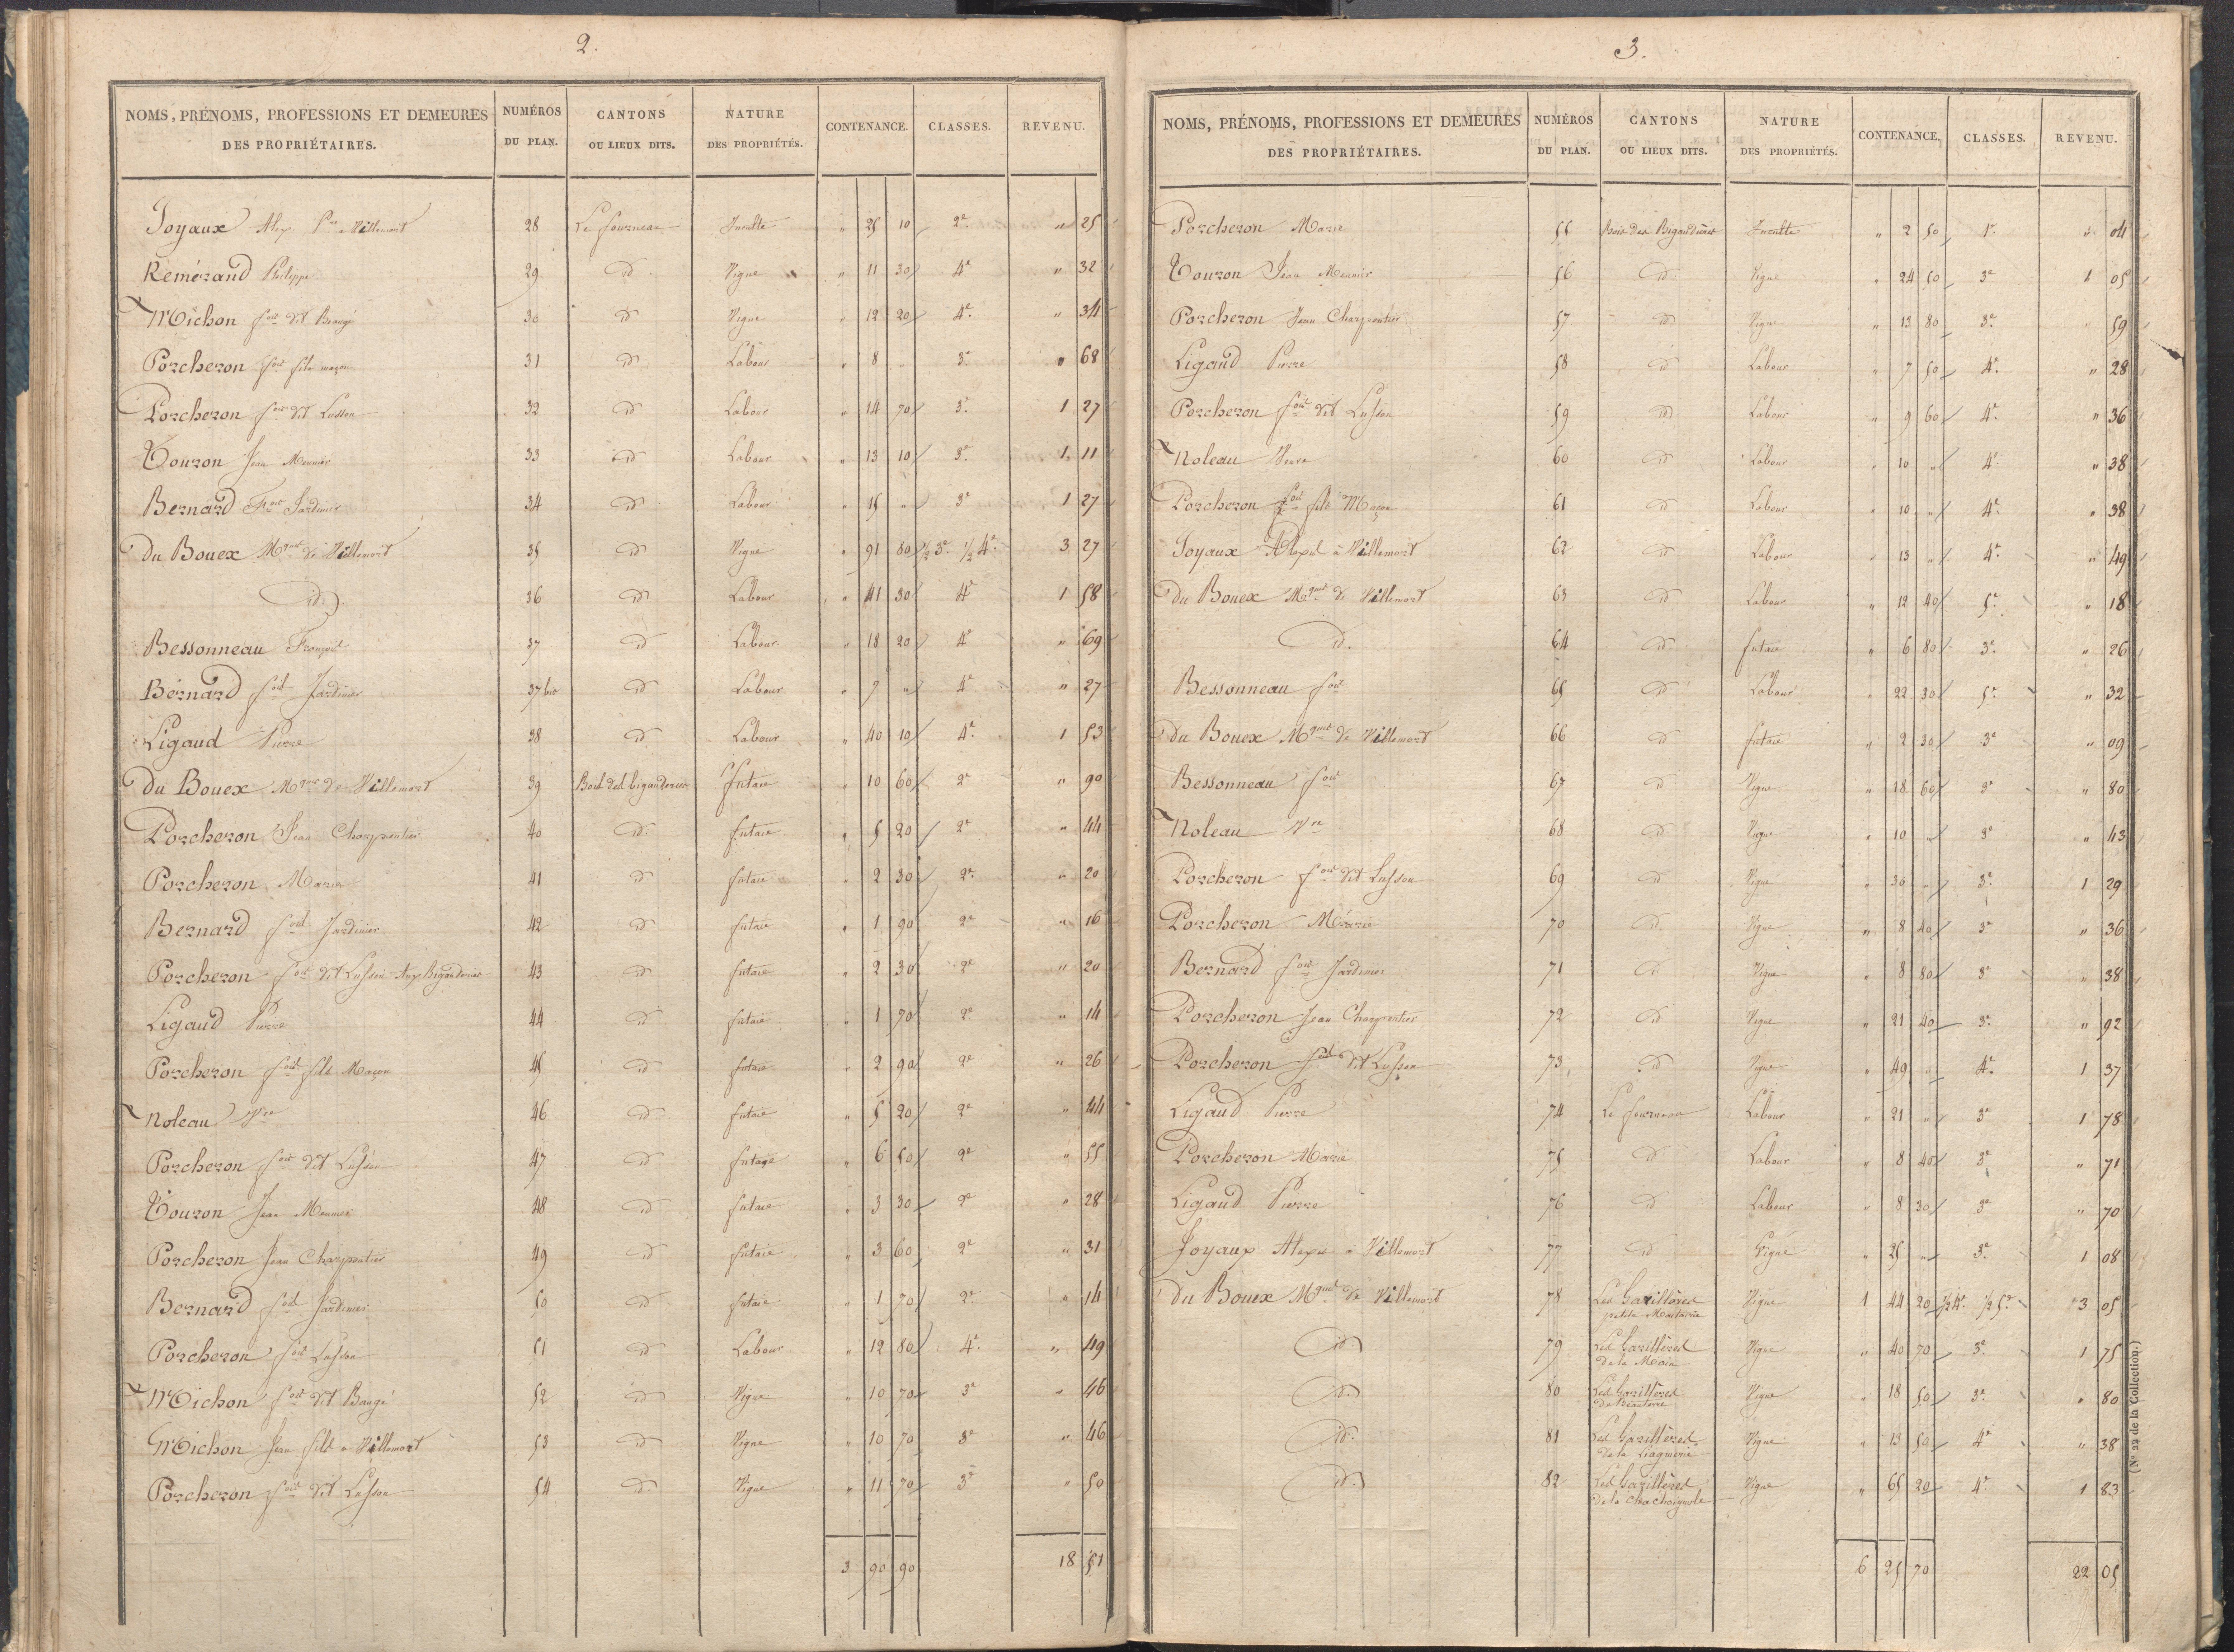 2.
NOMS, PRÉNOMS, PROFESSIONS ET DEMEURES DES PROPRIÉTAIRES. NUMÉROS DU PLAN. CANTONS OU LIEUX DITS. NATURE DES PROPRIÉTÉS. CONTENANCE. CLASSES. REVENU.
Joyaux Alex. à Villemort 28 Le fourneau Inculte " 25 10 2e " 25
Remérand Philippe 29 id Vigne " 11 30 4e " 32
Michon fois dit Beaugé 30 id Vigne " 12 20 4e " 34
Porcheron fois fils maçon 31 id Labour " 8 " 3e " 68
Porcheron fois dit Lusson 32 id Labour " 14 70 3e 1 27
Touron Jean Meunier 33 id Labour " 13 10 3e 1 11
Bernard Fois Jardinier 34 id Labour " 15 " 3e 1 27
Du Bouex Mquis de Villemort 35 id Vigne " 91 80 1/2 3e 1/2 4e 3 27
id. 36 id Labour " 41 30 4e 1 58
Bessonneau François 37 id Labour " 18 20 4e " 69
Bernard fois Jardinier 37 bis id Labour " 7 " 4e " 27
Ligaud Pierre 38 id Labour " 40 10 4e 1 53
Du Bouex Mquis de Villemort 39 Bois des bigauderies futaie " 10 60 2e " 90
Porcheron Jean Charpentier 40 id futaie " 5 20 2e " 44
Porcheron Marie 41 id futaie " 2 30 2e " 20
Bernard fois Jardinier 42 id futaie " 1 90 2e " 16
Porcheron fois dit Lusson Aux Bigauderies 43 id futaie " 2 30 2e " 20
Ligaud Pierre 44 id futaie " 1 70 2e " 14
Porcheron fois fils Maçon 45 id futaie " 2 90 2e " 26
Noleau Vve 46 id futaie " 5 20 2e " 44
Porcheron fois dit Lusson 47 id futaie " 6 50 2e " 55
Touron Jean Meunier 48 id futaie " 3 30 2e " 28
Porcheron Jean Charpentier 49 id futaie " 3 60 2e " 31
Bernard fois Jardinier 50 id futaie " 1 70 2e " 14
Porcheron fois Lusson 51 id Labour " 12 80 4e " 49
Michon fois dit Baugé 52 id Vigne " 10 70 3e " 46
Michon Jean fils à Villemort 53 id Vigne " 10 70 3e " 46
Porcheron fois dit Lusson 54 id Vigne " 11 70 3e " 50
3 90 90 18 51
3.
NOMS, PRÉNOMS, PROFESSIONS ET DEMEURES DES PROPRIÉTAIRES. NUMÉROS DU PLAN. CANTONS OU LIEUX DITS. NATURE DES PROPRIÉTÉS. CONTENANCE. CLASSES. REVENU.
Porcheron Marie 55 Bois des Bigaudières Inculte " 2 50 1e " 04
Touron Jean Meunier 56 id Vigne " 24 50 3e 1 05
Porcheron Jean Charpentier 57 id Vigne " 13 80 3e " 59
Ligaud Pierre 58 id Labour " 7 50 4e " 28
Porcheron fois dit Lusson 59 id Labour " 9 60 4e " 36
Noleau Veuve 60 id Labour " 10 " 4e " 38
Porcheron fois fils Maçon 61 id Labour " 10 " 4e " 38
Joyaux Alexis à Villemort 62 id Labour " 13 " 4e " 49
Du Bouex Mquis de Villemort 63 id Labour " 12 40 5e " 18
id. 64 id futaie " 6 80 3e " 26
Bessonneau fois 65 id Labour " 22 30 5e " 32
du Bouex Mquis de Villemort 66 id futaie " 2 30 3e " 09
Bessonneau fois 67 id Vigne " 18 60 3e " 80
Noleau Vve 68 id Vigne " 10 " 3e " 43
Porcheron fois dit Lusson 69 id Vigne " 30 " 3e 1 29
Porcheron Marie 70 id Vigne " 8 40 3e " 36
Bernard fois Jardinier 71 id Vigne " 8 80 3e " 38
Porcheron Jean Charpentier 72 id Vigne " 21 40 3e " 92
Porcheron fois dit Lusson 73 id Vigne " 49 " 4e 1 37
Ligaud Pierre 74 Le fourneau Labour " 21 " 3e 1 78
Porcheron Marie 75 id Labour " 8 40 3e " 71
Ligaud Pierre 76 id Labour " 8 30 3e " 70
Joyaux Alexis à Villemort 77 id Vigne " 25 " 3e 1 08
du Bouex Mquis de Villemort 78 Les Garillères petite Métairie Vigne 1 44 20 1/2 4e 1/2 5e 3 05
id. 79 Les Garillères de la Main Vigne " 40 70 3e 1 75
id. 80 Les Garillères Vigne " 18 50 3e " 80
id. 81 Les Garillères Vigne " 13 50 4e " 38
id. 82 Les Garillères de la Chachaignole Vigne " 65 20 4e 1 83
6 25 70 22 05
(N° 22 de la Collection.)